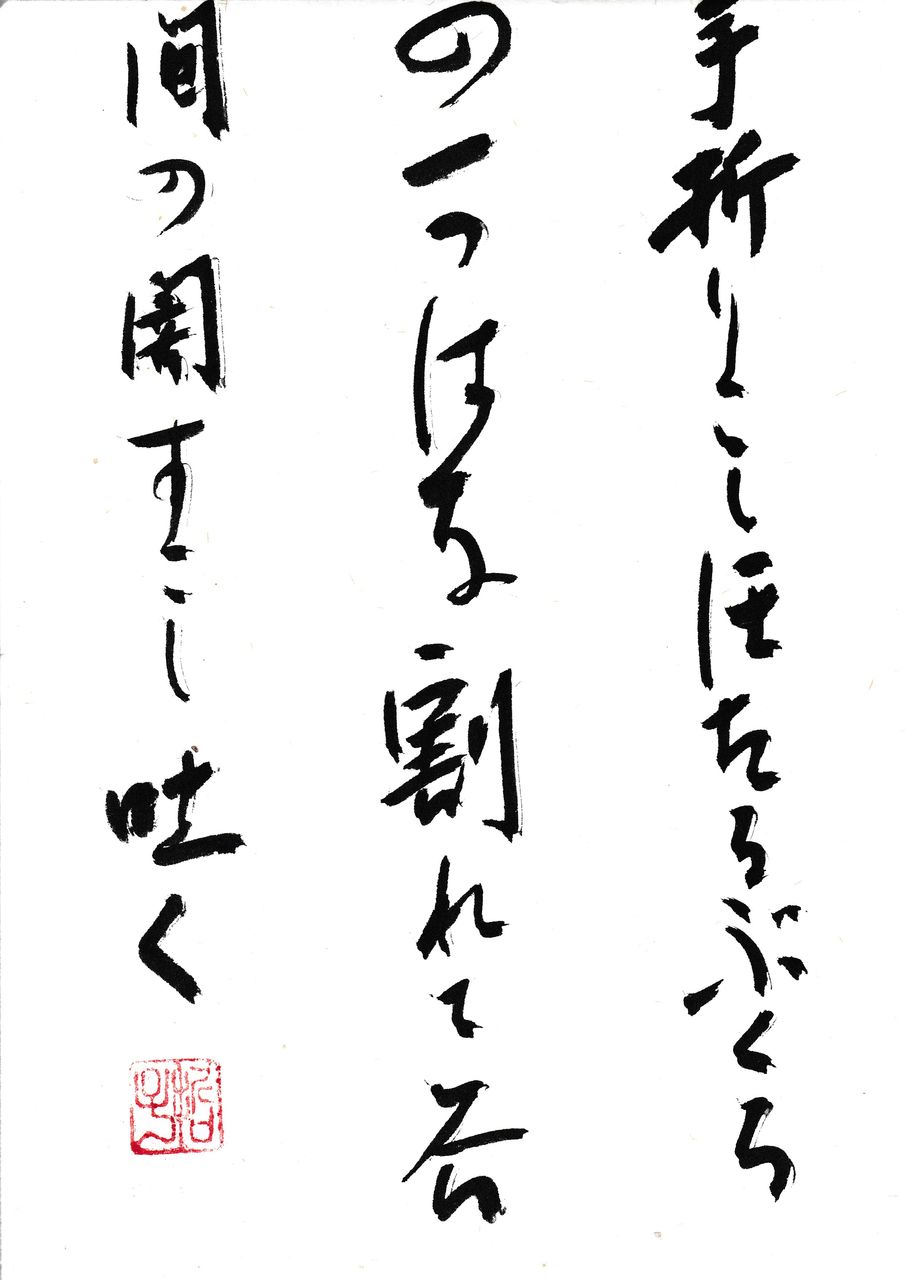 手折りこしほたるぶくろ
の一つはな割れて谷
間の闇すこし吐く